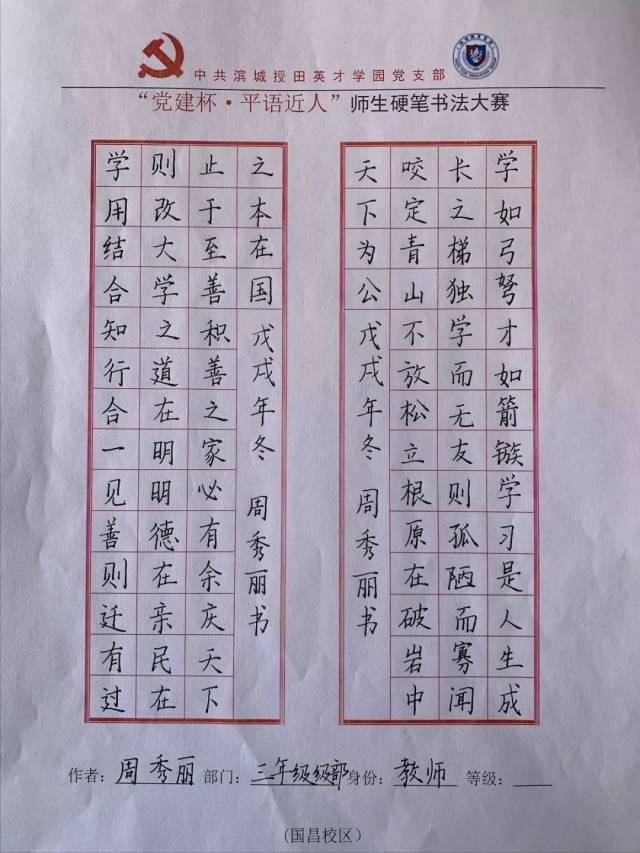 中共滨城授田英才学园党支部
“党建杯·平语近人”师生硬笔书法大赛
学如弓弩才如箭镞学习是人生成
长之梯独学而无友则孤陋而寡闻
咬定青山不放松立根原在破岩中
天下为公 戊戌年冬 周秀丽书
学用结合知行合一见善则迁有过
则改大学之道在明明德在亲民在
止于至善积善之家必有余庆天下
之本在国 戊戌年冬 周秀丽书
作者：周秀丽 部门：三年级级部 身份：教师 等级：
（国昌校区）